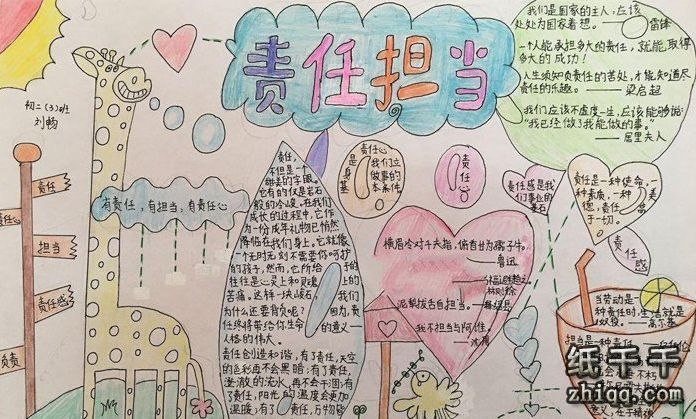 责任担当
初二(3)班
刘畅
我们是国家的主人,应该
处处为国家着想。——雷锋
一个人能承担多大的责任,就能取得
多大的成功!
人生须知负责任的苦处,才能知道尽
责任的乐趣。——梁启超
我们应该不虚度一生,应该能够说:
"我已经做了我能做的事。"
——居里夫人
责任
担当
责任感
负责
有责任,有担当,有责任心
责任,
不但是一个
甜美的字眼,
它有的仅是岩石
般的冷峻。在我们
成长的过程中,它作
为一份成年礼物已悄然
降临在我们身上。它就像
一个无时无刻不需要你呵护
的孩子,然而,它所给
往往是心灵上和灵魂
苦痛。这样一块
为什么还要背负呢?
任终将带给你生命
人格的伟大。
责任创造和谐,有了责任,天空
的色彩再不会黑暗;有了责任,
澄澈的流水,再不会干涸;有
了责任,阳光的温度会更加
温暖;有了责任,万物能
责任心
是我们立
身做事的
基本条件。
责任心
责任感是我
们事业的
基石
责任是一种使命,一
种素质,一种美
德,责任
于一切。
责任感
横眉冷对千夫指,俯首甘为孺子牛。
——鲁迅
林则徐
我不担当与阿谁。
——沈周
当劳动是
一种责任时,生活就是
奴役。——高尔基
担当是一种责任
纸千千
zhiqq.com